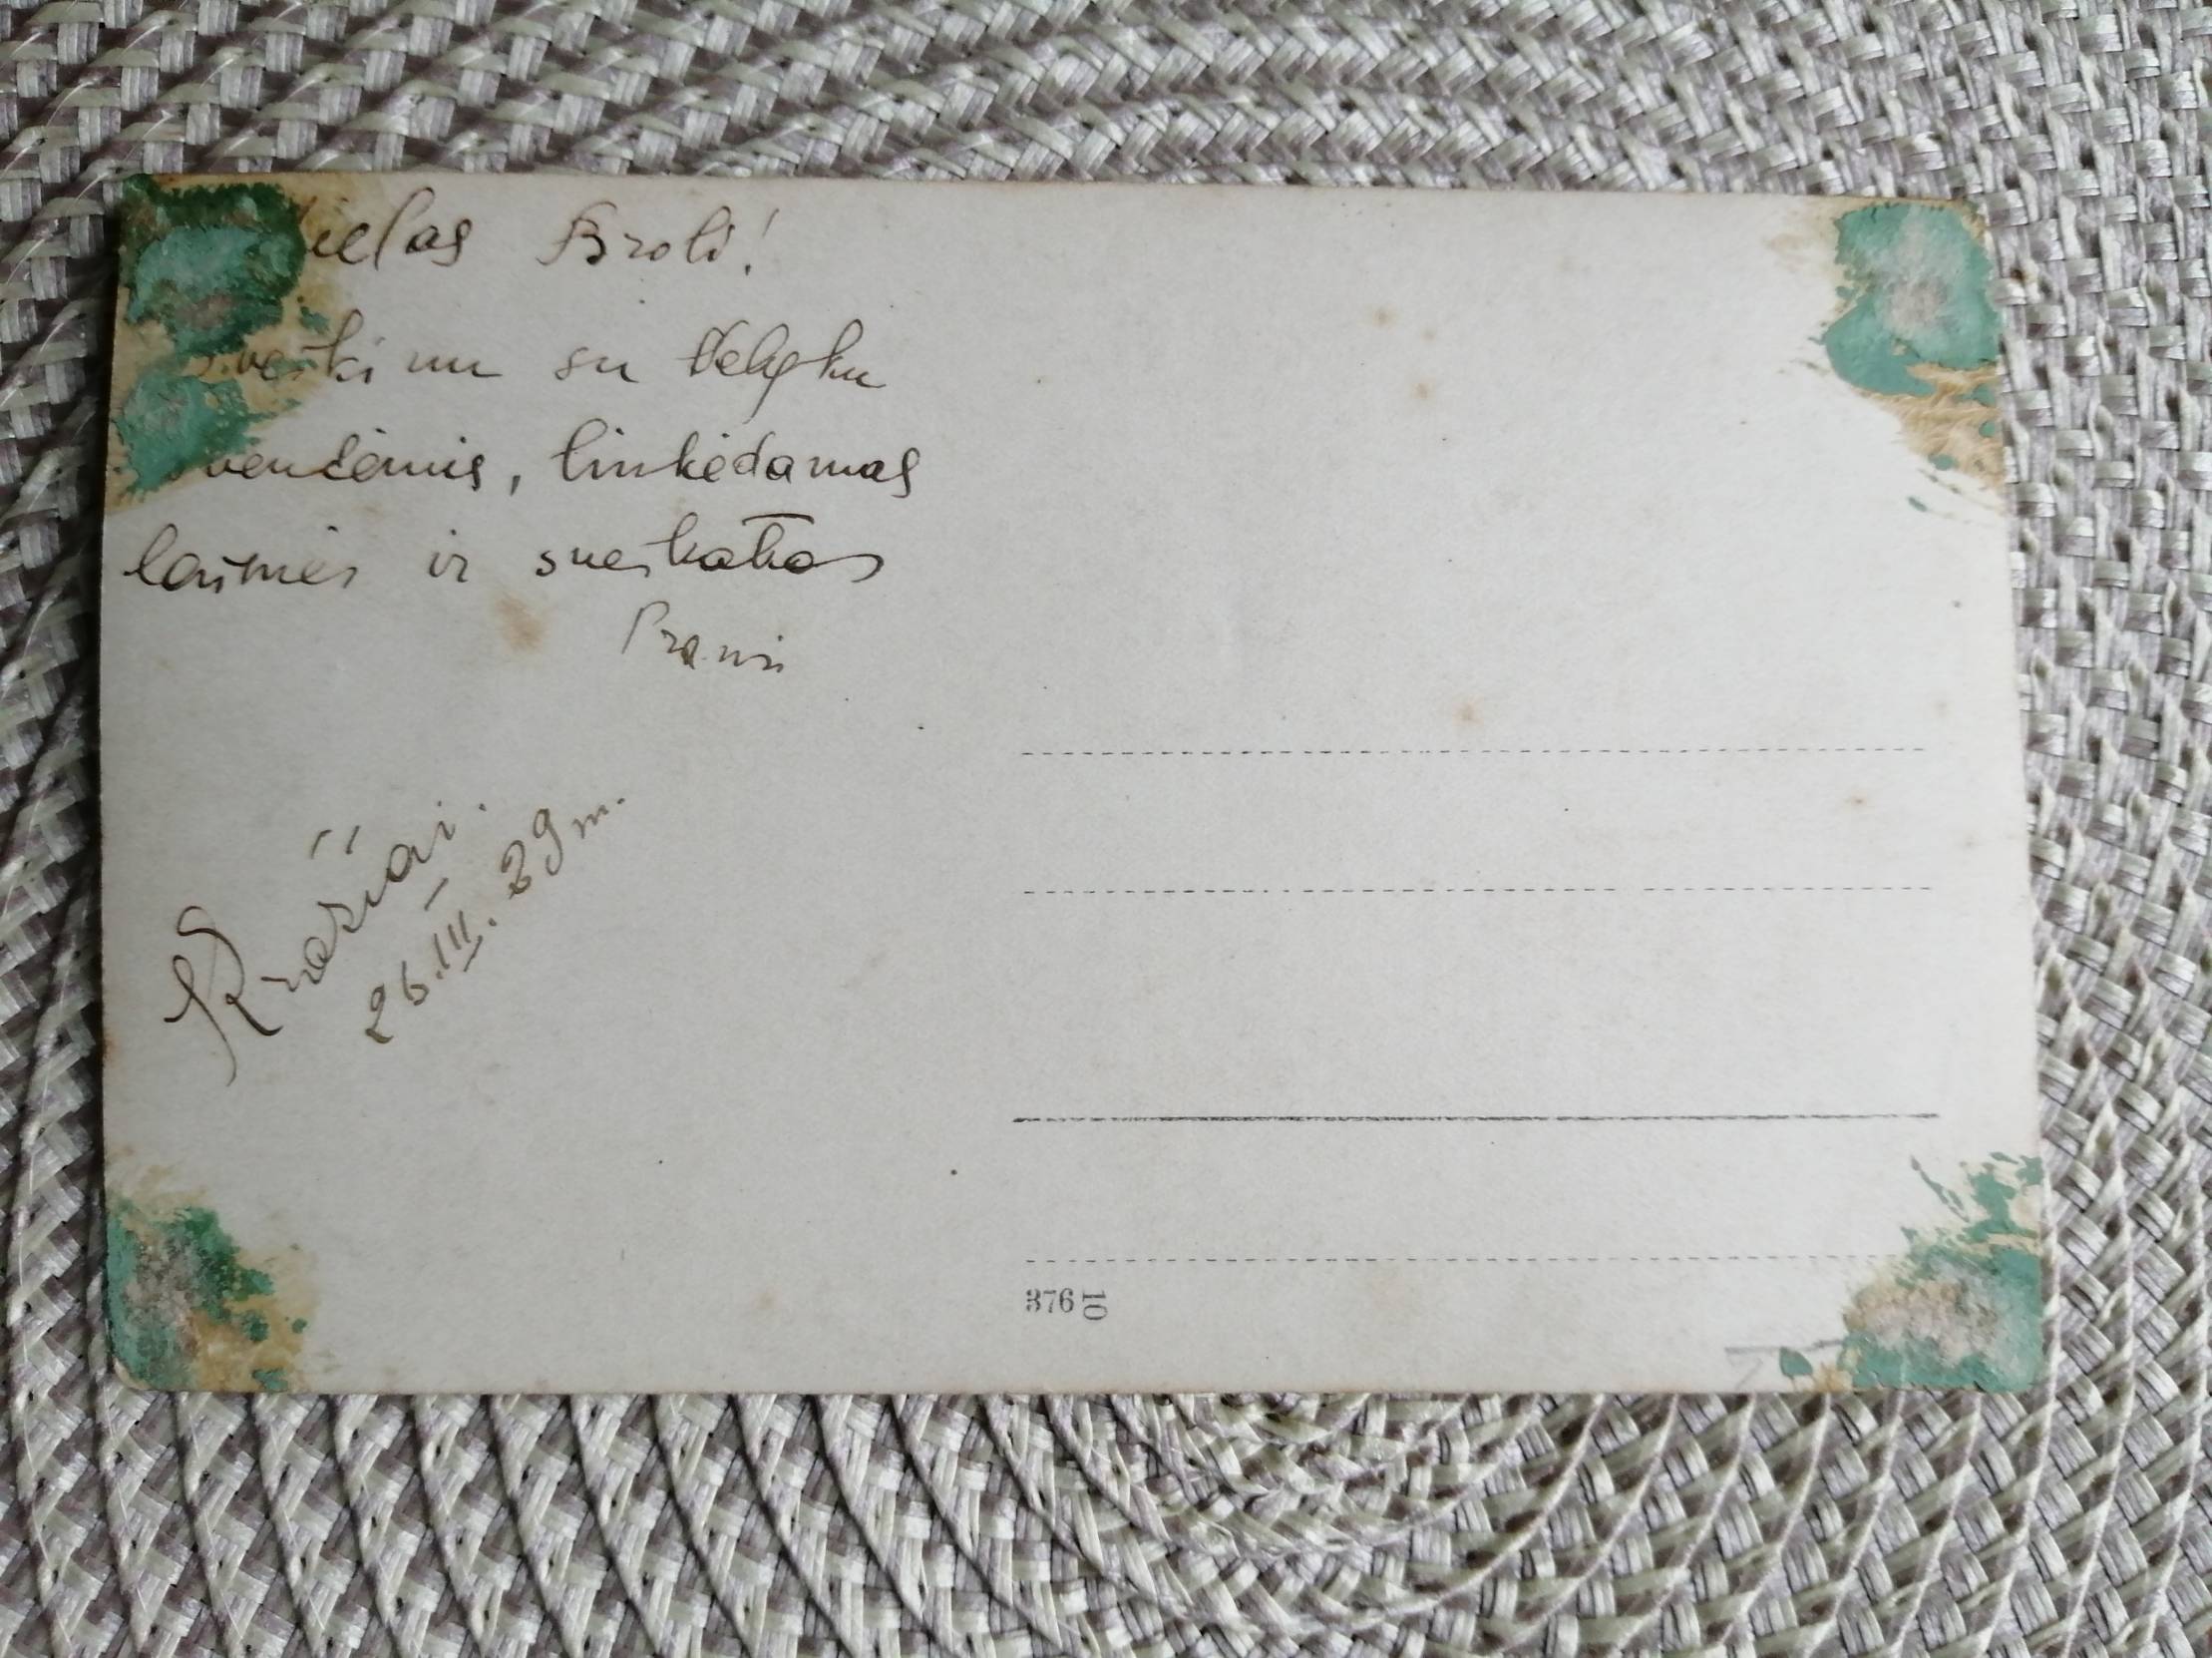 ielas Broli!
sveikinu su Velykų
vendėmis, linkėdamas
laimės ir sveikatos
Kražiai.
26.III.29 m.
376 10